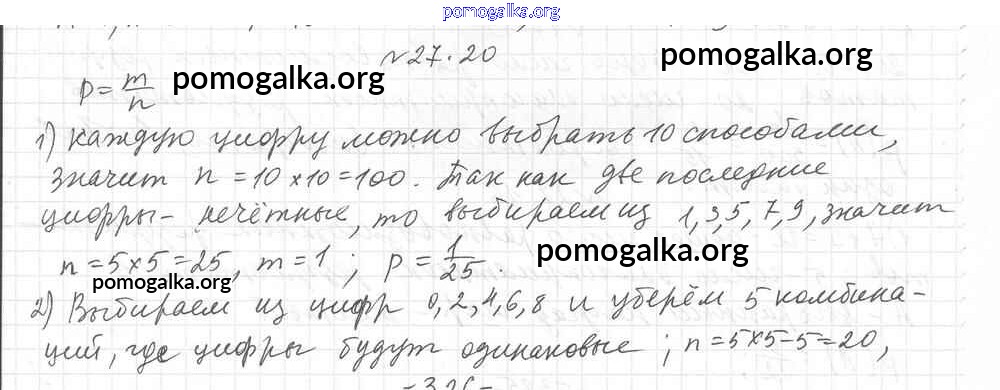 pomogalka.org
№ 27.20
pomogalka.org
p = m/n
pomogalka.org
1) Каждую цифру можно выбрать 10 способами,
значит n = 10 × 10 = 100. Так как две последние
цифры - нечётные, то выбираем из 1, 3, 5, 7, 9, значит
n = 5 × 5 = 25, m = 1 ; p = 1/25 .
pomogalka.org
pomogalka.org
2) Выбираем из цифр 0, 2, 4, 6, 8 и уберём 5 комбина-
ций, где цифры будут одинаковые ; n = 5×5-5=20,